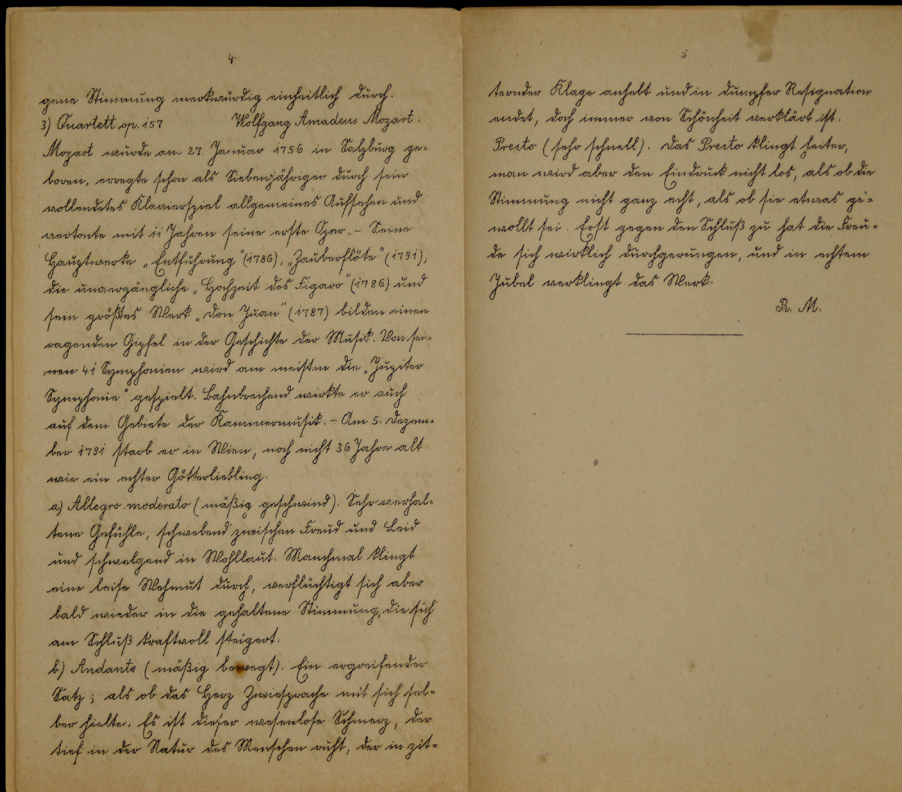 4
gene Stimmung merkwürdig einheitlich durch.
3) Quartett op. 157 Wolfgang Amadeus Mozart.
Mozart wurde am 27. Januar 1756 in Salzburg ge-
boren, erregte schon als Siebenjähriger durch sein
vollendetes Klavierspiel allgemeines Aufsehen und
vertonte mit 11 Jahren seine erste Oper. – Seine
Hauptwerke „Entführung" (1786), „Zauberflöte" (1791),
die unvergängliche „Hochzeit des Figaro" (1786) und
sein größtes Werk „Don Juan" (1787) bilden einen
ragenden Gipfel in der Geschichte der Musik. Von sei-
nen 41 Symphonien wird am meisten die „Jupiter
Symphonie" gespielt. Bahnbrechend wirkte er auch
auf dem Gebiete der Kammermusik. – Am 5. Dezem-
ber 1791 starb er in Wien, noch nicht 36 Jahre alt
wie ein echter Götterliebling.
a) Allegro moderato (mäßig geschwind). Sehr verhal-
tene Gefühle, schwebend zwischen Freud und Leid
und schwelgend in Wohllaut. Manchmal klingt
eine leise Wehmut durch, verflüchtigt sich aber
bald wieder in die gehaltene Stimmung, die sich
am Schluß kraftvoll steigert.
b) Andante (mäßig bewegt). Ein ergreifender
Satz; als ob das Herz Zwiesprache mit sich sel-
ber hielte. Es ist dieser wesenlose Schmerz, der
tief in der Natur des Menschen ruht, der in zit-
5
ternder Klage anhebt und in dumpfer Resignation
endet, doch immer von Schönheit verklärt ist.
Presto (sehr schnell). Das Presto klingt heiter,
man wird aber den Eindruck nicht los, als ob die
Stimmung nicht ganz echt, als ob sie etwas ge-
wollt sei. Erst gegen den Schluß zu hat die Freu-
de sich wirklich durchgerungen, und in echtem
Jubel verklingt das Werk.
R. M.